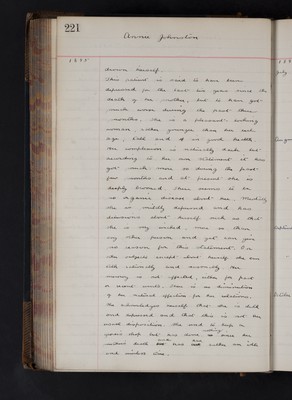 221
Annie Johnston
1895
drown herself.
This patient is said to have been
depressed for the last six years since the
death of her mother, but to have got
much worse during the past three
months. She is a pleasant looking
woman, rather younger than her real
age, tall and of good health.
Her complexion is naturally dark but
according to her own statement it has
got much more so during the past
few months and at present she is
deeply bronzed. There seems to be
no organic disease about her. Mentally
she is mildly depressed and has
delusions about herself such as that
she is very wicked, more so than
any other person and yet can give
no reason for this statement. On
other subjects except about herself she can
talk rationally and sensibly. Her
memory is not affected, either for past
or recent events. There is no diminution
of her natural affection for her relations.
She acknowledges herself that she is dull
and depressed and that this is not her
usual disposition. She used to keep a
shop but
mother's death has not